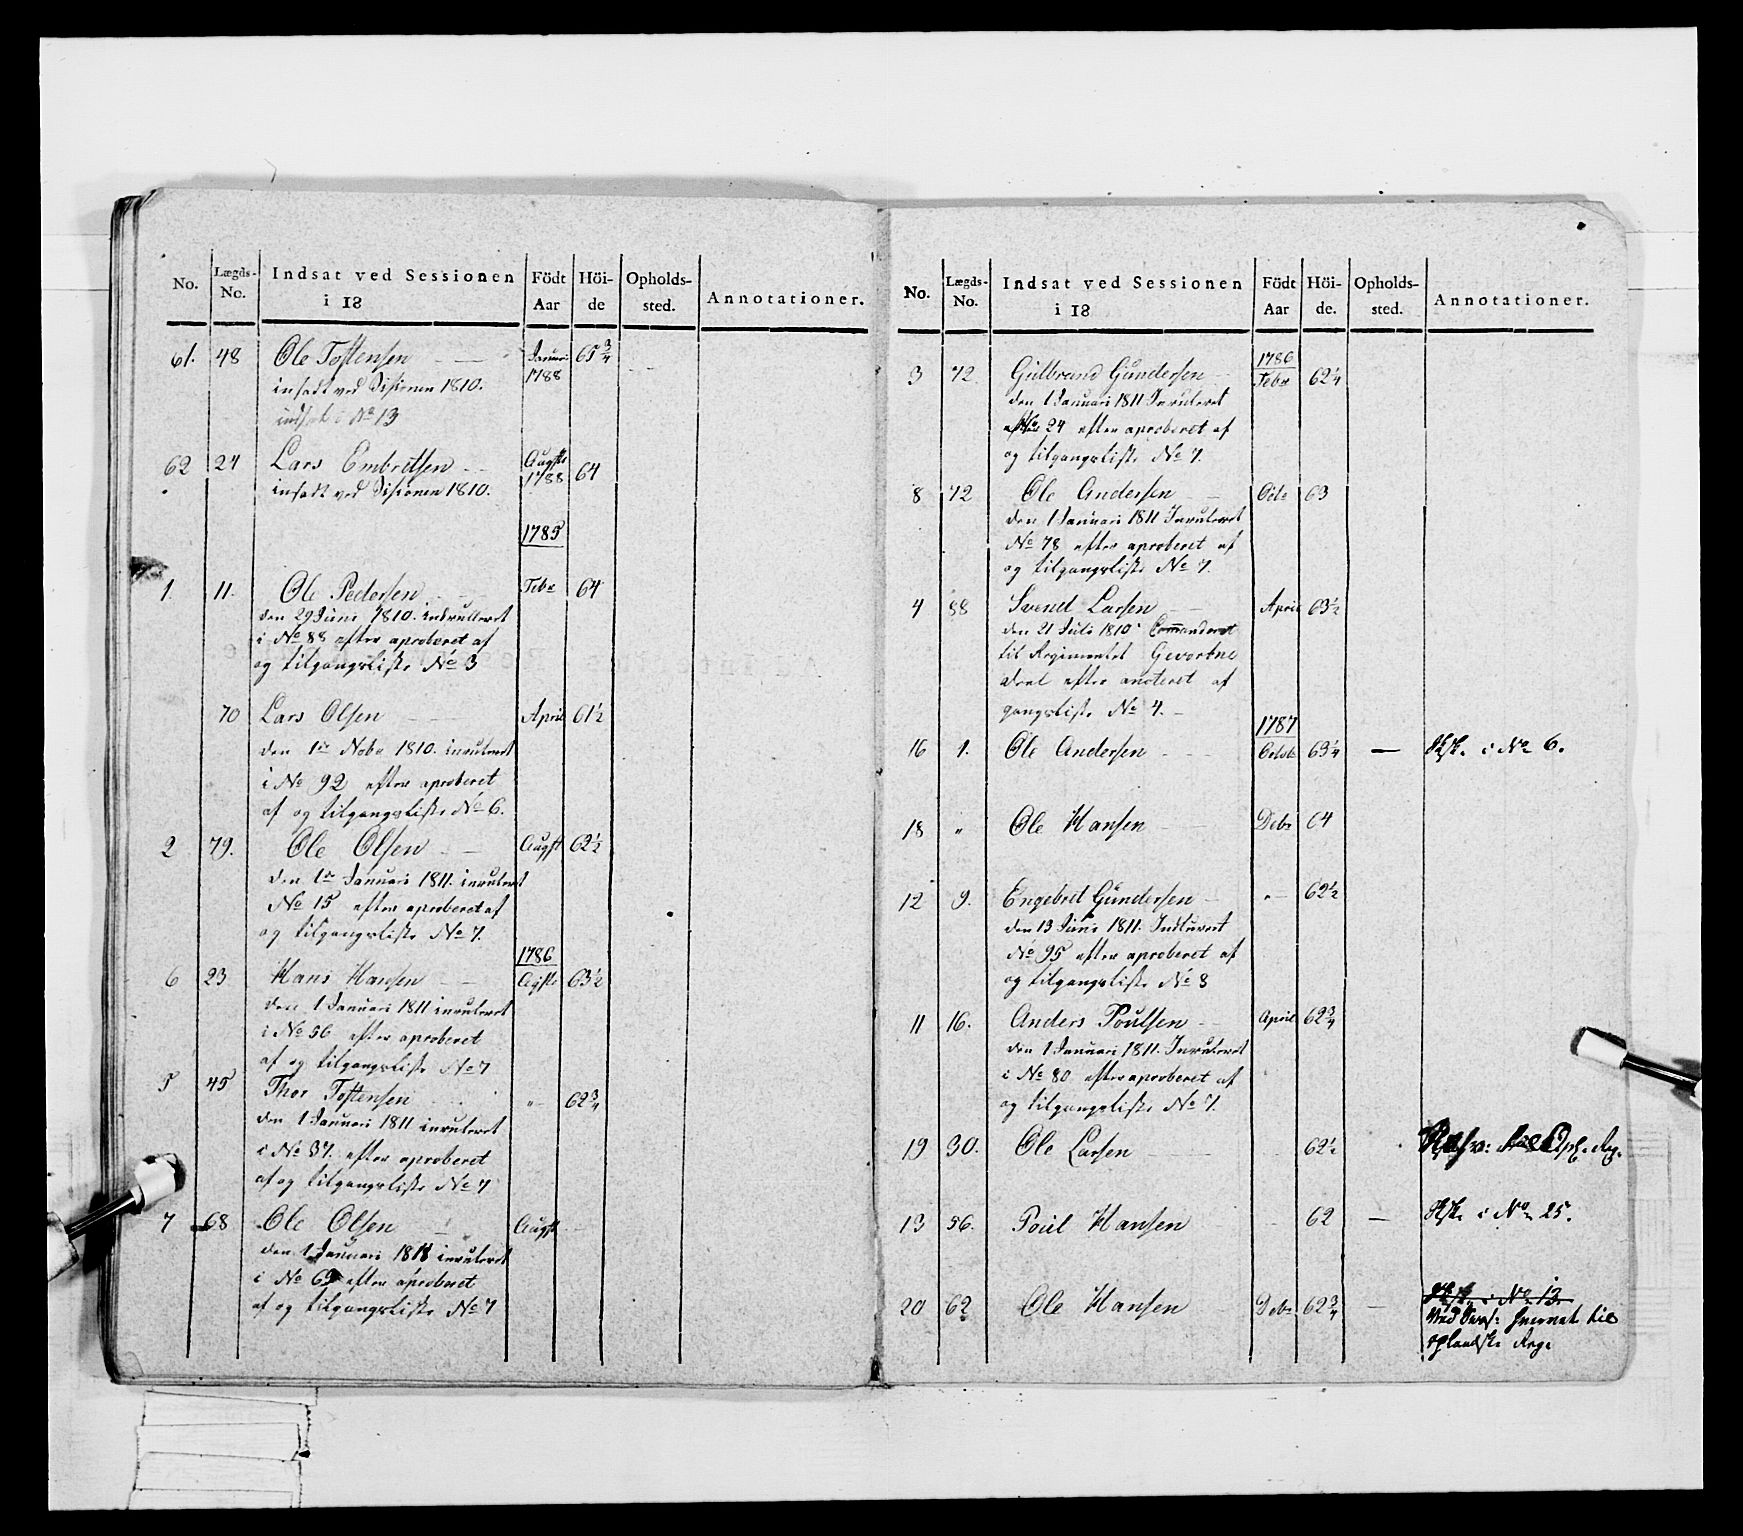 No. Lægds-No. Indsat ved Sessionen i 18 Födt Aar Höi-de Opholds-sted. Annotationer.
61. 48 Ole Tostensen Januari 1788 65 3/4
insadt ved Sisionen 1810.
indsat i No 13
62 24 Lars Embretsen Augst 1788 64
insadt ved Sisionen 1810.
1785
1. 11. Ole Pedersen Febr 64
den 29 Juni 1810. indrulleret
i No 88 efter aproberet af
og tilgangsliste No 3
70 Lars Olsen April 61 1/2
den 1te Nobr 1810. inruleret
i No 92 efter aproberet
af og tilgangsliste No 6.
2 79. Ole Olsen Augst 62 1/2
den 1te Januari 1811. inruleret
No 15 efter aproberet af
og tilgangsliste No 7.
1786
6 23 Hans Hansen Agste 63 1/2
den 1 Januari 1811 inruleret
i No 56 efter aproberet
af og tilgangsliste No 7
5 45 Thor Tostensen „ 62 3/4
den 1 Januari 1811 inruleret
i No 37. efter aproberet
af og tilgangsliste No 7
7 68 Ole Olsen Augst
den 1 Januari 1811 inruleret
i No 69 efter aproberet
af og tilgangsliste No 7
No. Lægds-No. Indsat ved Sessionen i 18 Födt Aar Höi-de. Opholds-sted. Annotationer.
1786
3 72. Gulbrand Gundersen Febr 62 1/4
den 1 Januari 1811 Inruleret
24 efter aproberet af
og tilgangsliste No 7.
8 72 Ole Andersen Octe 63
den 1 Januari 1811 Inruleret
No 78 efter aproberet af
og tilgangsliste No 7.
4 88 Svend Larsen April 63 1/2
den 21 Juli 1810 Commanderet
til Regimentet Gevorbne
deel efter anoteret af
gangsliste No 4.
1787
16 1. Ole Andersen Octob 63 1/4 — i No 6.
18 „ Ole Hansen Debr 64
12 9. Engebret Gundersen „ 62 1/2
den 13 Juni 1811. Indluret
No 95 efter aproberet af
og tilgangsliste No 8
11 16. Anders Poulsen April 62 3/4
den 1 Januari 1811. Inruleret
i No 80 efter aproberet af
og tilgangsliste No 7.
19 30. Ole Larsen 62 1/2 til Opl. Reg.
13 56. Poul Hansen 62 — i No 25.
20 62 Ole Hansen Debr 62 3/4 — i No 13.
Ved til
oplandske Reg.